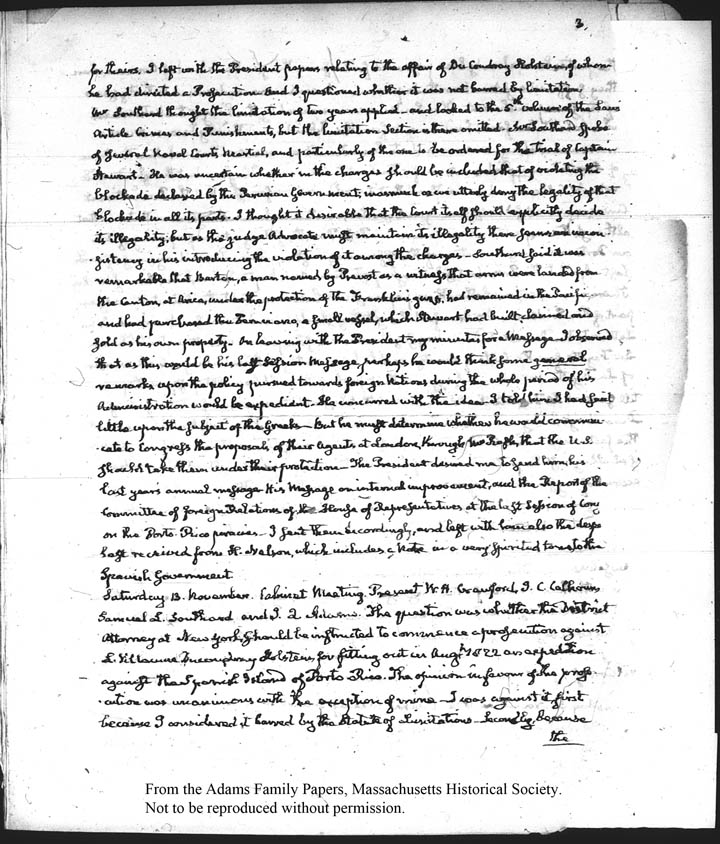 3.
for theirs. I left with the President papers relating to the affair of Du Coudray Holstein, of whom
he had directed a Prosecution and I questioned whether it was not barred by limitation.
Mr Southard thought the limitation of two years applied — and looked to the 5th volume of the Laws
Article Crimes and Punishments, but the limitation Section is there omitted. Mr Southard spoke
of several Naval Courts Martial, and particularly of the one to be ordered for the trial of Captain
Stewart — He was uncertain whether in the charges should be included that of violating the
blockade declared by the Peruvian Government, inasmuch as we utterly deny the legality of that
blockade in all its parts. I thought it desirable that the Court itself should explicitly decide
its illegality; but as the judge Advocate must maintain its illegality there seems an incon-
-sistency in his introducing the violation of it among the charges — Southard said it was
remarkable that Barton, a man named by Prevost as a witness that arms were landed from
the Canton, at Arica, under the protection of the Franklin's guns, had remained in the Pacific,
and had purchased the Peruviano, a small vessel, which Stewart had built, claimed and
sold as his own property — On leaving with the President my minutes for a Message I observed
that as this would be his last Session Message, perhaps he would think some general
remarks upon the policy pursued towards foreign Nations during the whole period of his
Administration would be expedient. He concurred with the idea. I told him I had said
little upon the subject of the Greeks — But he must determine whether he would communi-
-cate to Congress the proposals of their Agents at London, through Mr Rush, that the U.S.
should take them under their protection — The President desired me to send him, his
last years annual message His Message on internal improvement, and the Report of the
Committee of foreign Relations of the House of Representatives at the last Session of Cong
on the Porto Rico piracies — I sent them accordingly, and left with him also the desps
last received from H. Nelson, which includes a Note in a very spirited tone to the
Spanish Government.
Saturday 13. November. Cabinet Meeting. Present W. H. Crawford, J. C. Calhoun,
Samuel L. Southard and J. Q. Adams. The question was whether the District
Attorney at New York, should be instructed to commence a prosecution against
L. Villaume Ducoudray Holstein, for fitting out in Augt 1822 an expedition
against the Spanish Island of Porto Rico. The opinion in favour of the prose-
-cution was unanimous with the exception of mine — I was against it first
because I considered it barred by the Statute of Limitations — Secondly, because
the
From the Adams Family Papers, Massachusetts Historical Society.
Not to be reproduced without permission.